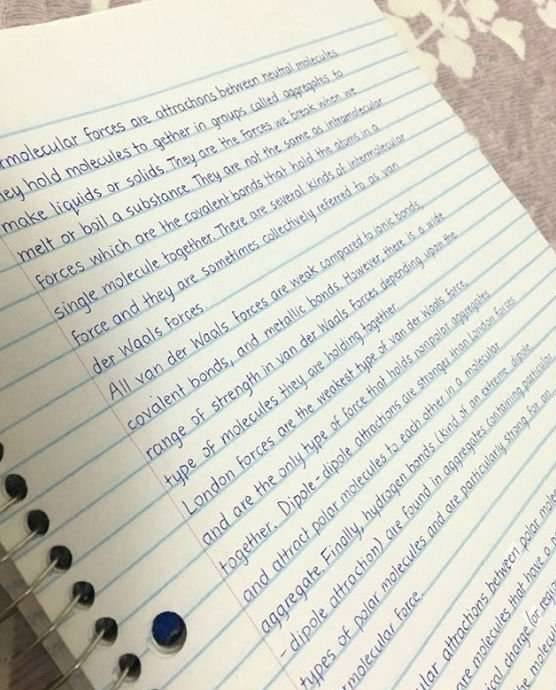 rmolecular forces are attractions between neutral molecules.
ey hold molecules to gether in groups called aggregates to
make liquids or solids. They are the forces we break when we
melt or boil a substance. They are not the same as intramolecular
forces which are the covalent bonds that hold the atoms in a
single molecule together. There are several kinds of intermolecular
force and they are sometimes collectively referred to as van
der Waals forces.
All van der Waals forces are weak compared to ionic bonds,
covalent bonds, and metallic bonds. However, there is a wide
range of strength in van der Waals forces depending upon the
type of molecules they are holding together.
London forces are the weakest type of van der Waals force
and are the only type of force that holds nonpolar aggregates
together. Dipole-dipole attractions are stronger than London forces
and attract polar molecules to each other in a molecular
aggregate. Finally, hydrogen bonds (kind of an extreme dipole
-dipole attraction) are found in aggregates containing particular
types of polar molecules and are particularly strong for an
rmolecular force.
lar attractions between polar
are molecules that have a
ical charge for
e mole